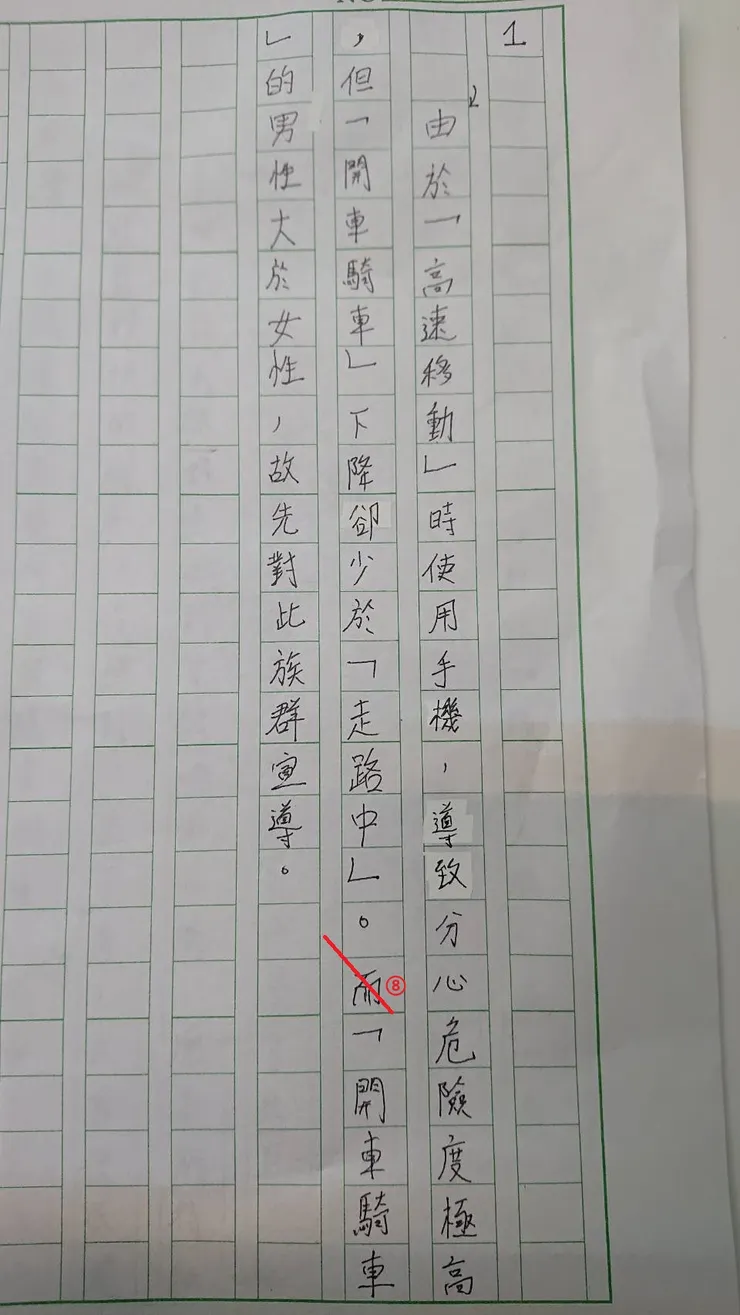 1
由於「高速移動」時使用手機,導致分心危險度極高
,但「開車騎車」下降卻少於「走路中」。而「開車騎車
」的男性大於女性,故先對此族群宣導。
⑧